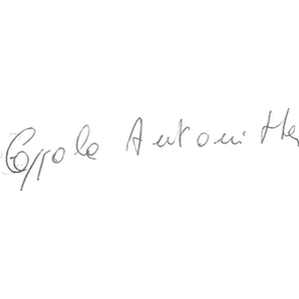 Coppola Antonietta